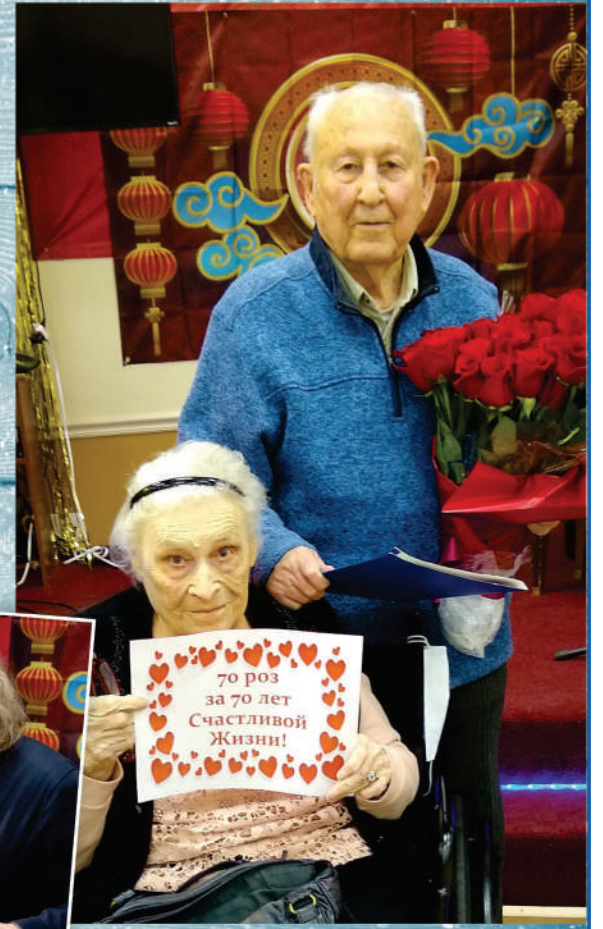 70 роз
за 70 лет
Счастливой
Жизни!